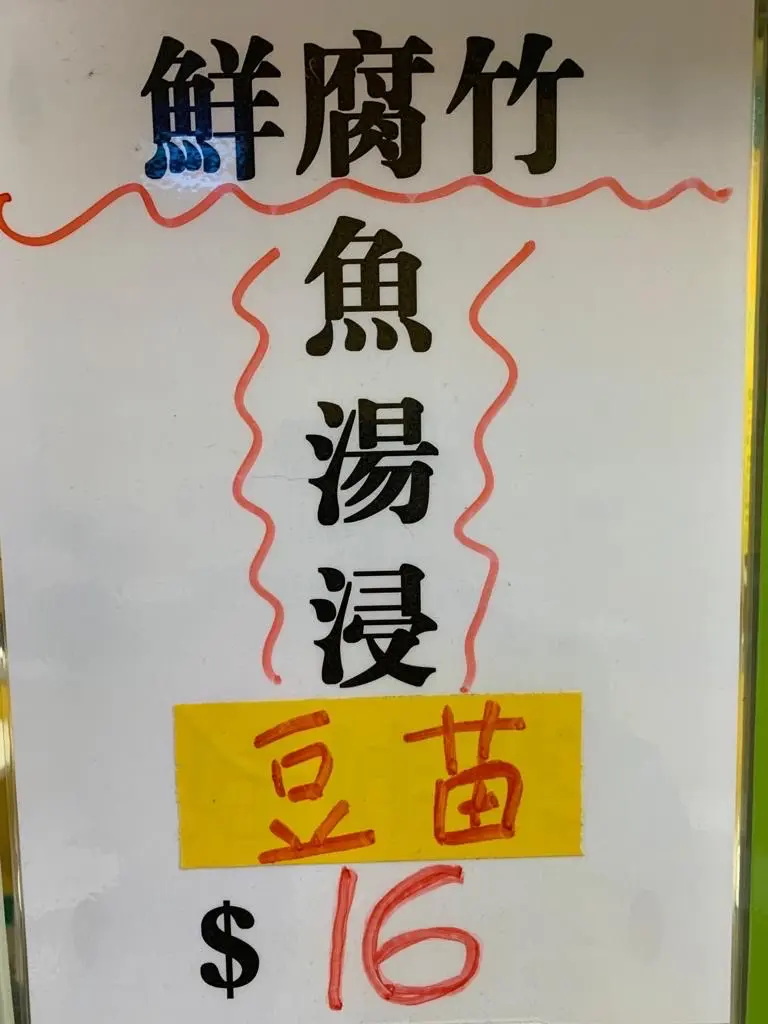 鮮腐竹
魚
湯
浸
豆苗
$16